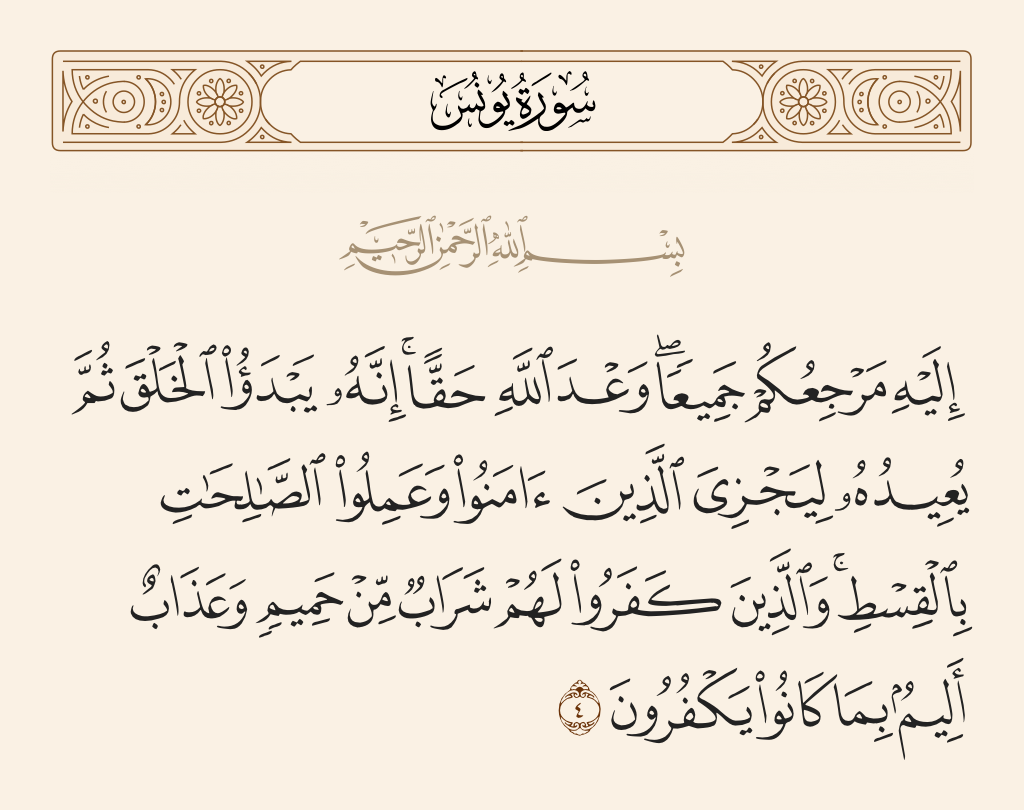 سُورَةُ يُونُسَ
بِسْمِ ٱللَّهِ ٱلرَّحْمَٰنِ ٱلرَّحِيمِ
إِلَيْهِ مَرْجِعُكُمْ جَمِيعًاۖ وَعْدَ ٱللَّهِ حَقًّاۚ إِنَّهُۥ يَبْدَؤُا۟ ٱلْخَلْقَ ثُمَّ
يُعِيدُهُۥ لِيَجْزِىَ ٱلَّذِينَ ءَامَنُوا۟ وَعَمِلُوا۟ ٱلصَّٰلِحَٰتِ
بِٱلْقِسْطِۚ وَٱلَّذِينَ كَفَرُوا۟ لَهُمْ شَرَابٌ مِّنْ حَمِيمٍ وَعَذَابٌ
أَلِيمٌۢ بِمَا كَانُوا۟ يَكْفُرُونَ ٤